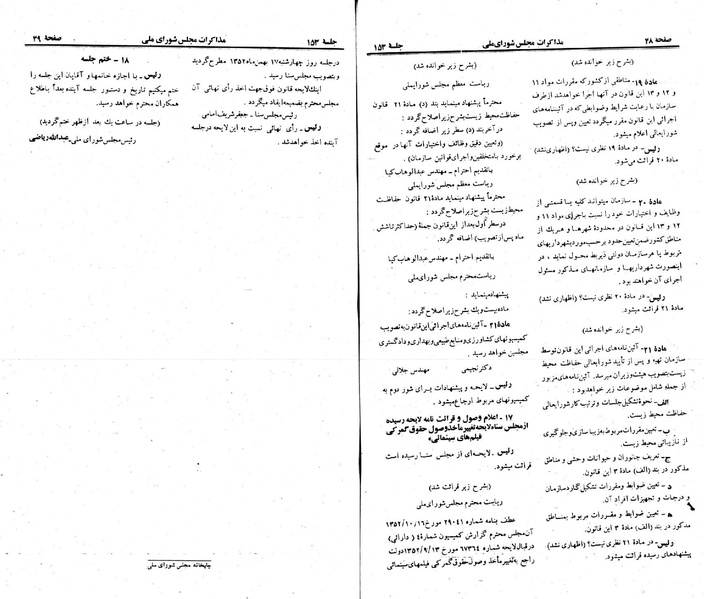 صفحهٔ ۳۸
مذاکرات مجلس شورای ملی
جلسهٔ ۱۵۳
(بشرح زیر خوانده شد)
مادهٔ ۱۹- مناطقی از کشور که مقررات مواد ۱۱
و ۱۲ و ۱۳ این قانون در آنها اجرا خواهد شد از طرف
سازمان با رعایت شرایط و ضوابطی که در آئین‌نامه‌های
اجرائی این قانون مقرر میگردد تعیین و پس از تصویب
شورایعالی اعلام میشود.
رئیس- در مادهٔ ۱۹ نظری نیست؟ (اظهاری نشد)
مادهٔ ۲۰ قرائت می‌شود.
(بشرح زیر خوانده شد)
مادهٔ ۲۰- سازمان میتواند کلیه یا قسمتی از
وظایف و اختیارات خود را نسبت باجرای مواد ۱۱ و
۱۲ و ۱۳ این قانون در محدودهٔ شهرها و هر یک از
مناطق کشور ضمن تعیین حدود بر حسب مورد بشهرداریهای
مربوط یا هر سازمان دولتی ذیربط محول نماید، در
اینصورت شهرداریها و سازمانهای مذکور مسئول
اجرای آن خواهند بود.
رئیس- در مادهٔ ۲۰ نظری نیست؟ (اظهاری نشد)
مادهٔ ۲۱ قرائت میشود.
(بشرح زیر خوانده شد)
مادهٔ ۲۱- آئین‌نامه‌های اجرائی این قانون توسط
سازمان تهیه و پس از تأیید شورایعالی حفاظت محیط
زیست بتصویب هیئت وزیران میرسد. آئین‌نامه‌های مزبور
از جمله شامل موضوعات زیر خواهد بود:
الف- نحوهٔ تشکیل جلسات و ترتیب کار شورایعالی
حفاظت محیط زیست.
ب- تعیین مقررات مربوط بزیباسازی و جلوگیری
از نازیبائی محیط زیست.
ج- تعریف جانوران و حیوانات وحشی و مناطق
مذکور در بند (الف) مادهٔ ۳ این قانون.
د- تعیین ضوابط و مقررات تشکیل گارد سازمان
و درجات و تجهیزات افراد آن.
ه- تعیین ضوابط و مقررات مربوط بمناطق
مذکور در بند (الف) مادهٔ ۳ این قانون.
رئیس- در مادهٔ ۲۱ نظری نیست؟ (اظهاری نشد)
پیشنهادهای رسیده قرائت میشود.
(بشرح زیر خوانده شد)
ریاست معظم مجلس شورایملی
محترماً پیشنهاد مینماید بند (د) مادهٔ ۲۱ قانون
حفاظت محیط زیست بشرح زیر اصلاح گردد:
در آخر بند (د) سطر زیر اضافه گردد:
(و تعیین دقیق وظائف و اختیارات آنها در موقع
برخورد با متخلفین و اجرای قوانین سازمان).
با تقدیم احترام- مهندس عبدالوهاب کیا
ریاست معظم مجلس شورایملی
محترماً پیشنهاد مینماید مادهٔ ۲۱ قانون حفاظت
محیط زیست بشرح زیر اصلاح گردد:
در سطر اول بعد از این قانون جملهٔ (حداکثر تا شش
ماه پس از تصویب) اضافه گردد.
با تقدیم احترام- مهندس عبدالوهاب کیا
ریاست محترم مجلس شورای ملی
پیشنهاد مینماید:
ماده بیست و یک بشرح زیر اصلاح گردد:
مادهٔ ۲۱- آئین‌نامه‌های اجرائی این قانون به تصویب
کمیسیونهای کشاورزی و منابع طبیعی و بهداری و دادگستری
مجلسین خواهد رسید.
دکتر نجیمی مهندس جلالی
رئیس- لایحه و پیشنهادات برای شور دوم به
کمیسیونهای مربوط ارجاع میشود.
۱۷- اعلام وصول و قرائت نامه لایحه رسیده
از مجلس سنا «لایحه تغییر مأخذ وصول حقوق گمرکی
فیلم‌های سینمائی»
رئیس- لایحه‌ای از مجلس سنا رسیده است
قرائت میشود.
(بشرح زیر قرائت شد)
ریاست محترم مجلس شورای ملی
عطف بنامه شماره ۲۹۰۴۱ مورخ ۱۳۵۲/۱۰/۱۶
آن مجلس محترم گزارش کمیسیون شمارهٔ ۴ (دارائی)
در قبال لایحه شماره ۶۷۳۶۴ مورخ ۱۳۵۲/۹/۱۳ دولت
راجع به تغییر مأخذ وصول حقوق گمرکی فیلمهای سینمائی
جلسهٔ ۱۵۳
مذاکرات مجلس شورای ملی
صفحهٔ ۳۹
در جلسه روز چهارشنبه ۱۷ بهمن ماه ۱۳۵۲ مطرح گردید
و بتصویب مجلس سنا رسید.
اینک لایحه قانون فوق جهت اخذ رأی نهائی آن
مجلس محترم بضمیمه ایفاد میگردد.
رئیس مجلس سنا- جعفر شریف امامی
رئیس- رأی نهائی نسبت به این لایحه در جلسه
آینده اخذ خواهد شد.
۱۸- ختم جلسه
رئیس- با اجازه خانمها و آقایان این جلسه را
ختم میکنیم تاریخ و دستور جلسه آینده بعداً باطلاع
همکاران محترم خواهد رسید.
(جلسه در ساعت یک بعد از ظهر ختم گردید)
رئیس مجلس شورای ملی- عبدالله ریاضی
چاپخانه مجلس شورای ملی